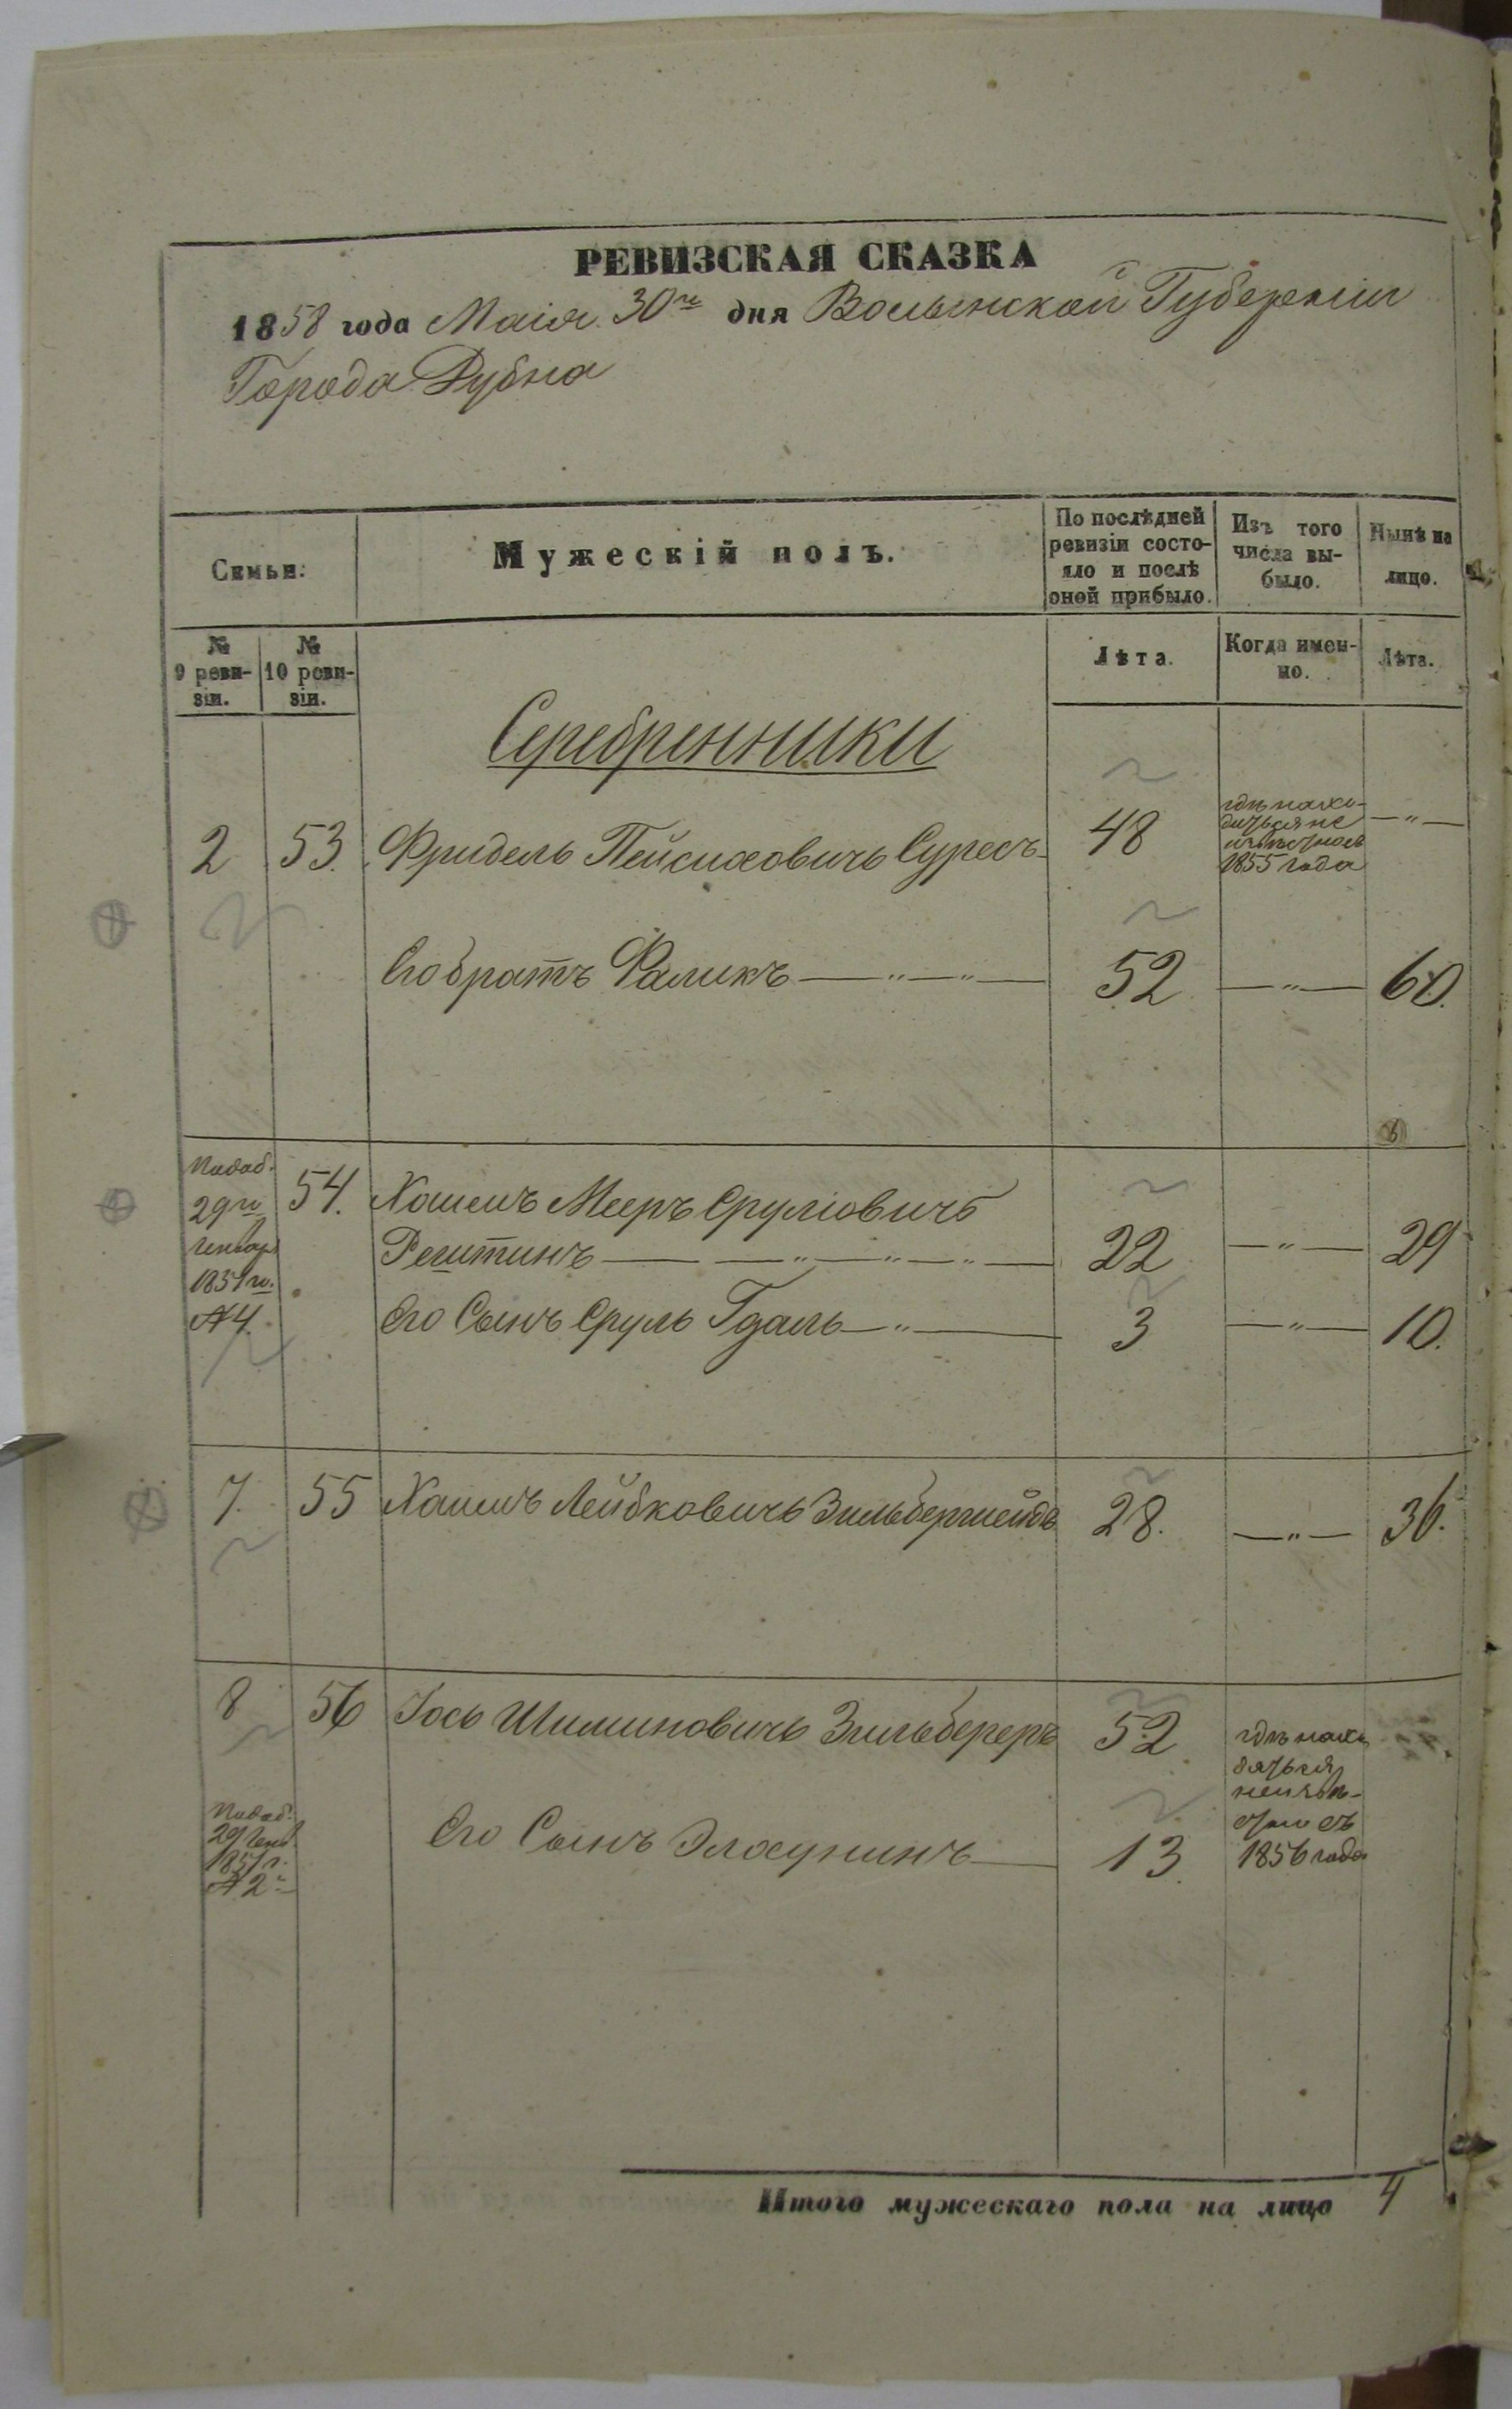 РЕВИЗСКАЯ СКАЗКА
1858 года Маія 30го дня Волынской Губерніи
Города Дубна
Семьи:
Мужескій полъ.
По послѣдней
ревизіи состо-
яло и послѣ
оной прибыло.
Изъ того
числа вы-
было.
Нынѣ на
лицо.
№
9 реви-
зіи.
№
10 реви-
зіи.
Лѣта.
Когда имен-
но.
Лѣта.
Серебренники
2 53. Фридель Пейсиховичъ Суресъ 48 —"—
гдѣ нахо-
дится не
извѣстносъ
1855 года
Его братъ Фаликъ —"—"— 52 —"— 60.
Подоб.
29го
Генвар
1851го.
№4.
54. Хаимъ Мееръ Сруліовичъ
Рештинъ — —"—"—"— 22 —"— 29
Его Сынъ Сруль Гдаль —"— 3 —"— 10.
7. 55 Хаимъ Лейбковичъ Зильбершейдъ 28. —"— 36.
8 56 Іось Шимоновичъ Зильбереръ 52.
гдѣ нахо
дяться
неизвѣ-
стно съ
1856 года
Подоб.
29 Генв
1851 г.
№ 2
Его Сынъ 13.
Итого мужескаго пола на лицо 4